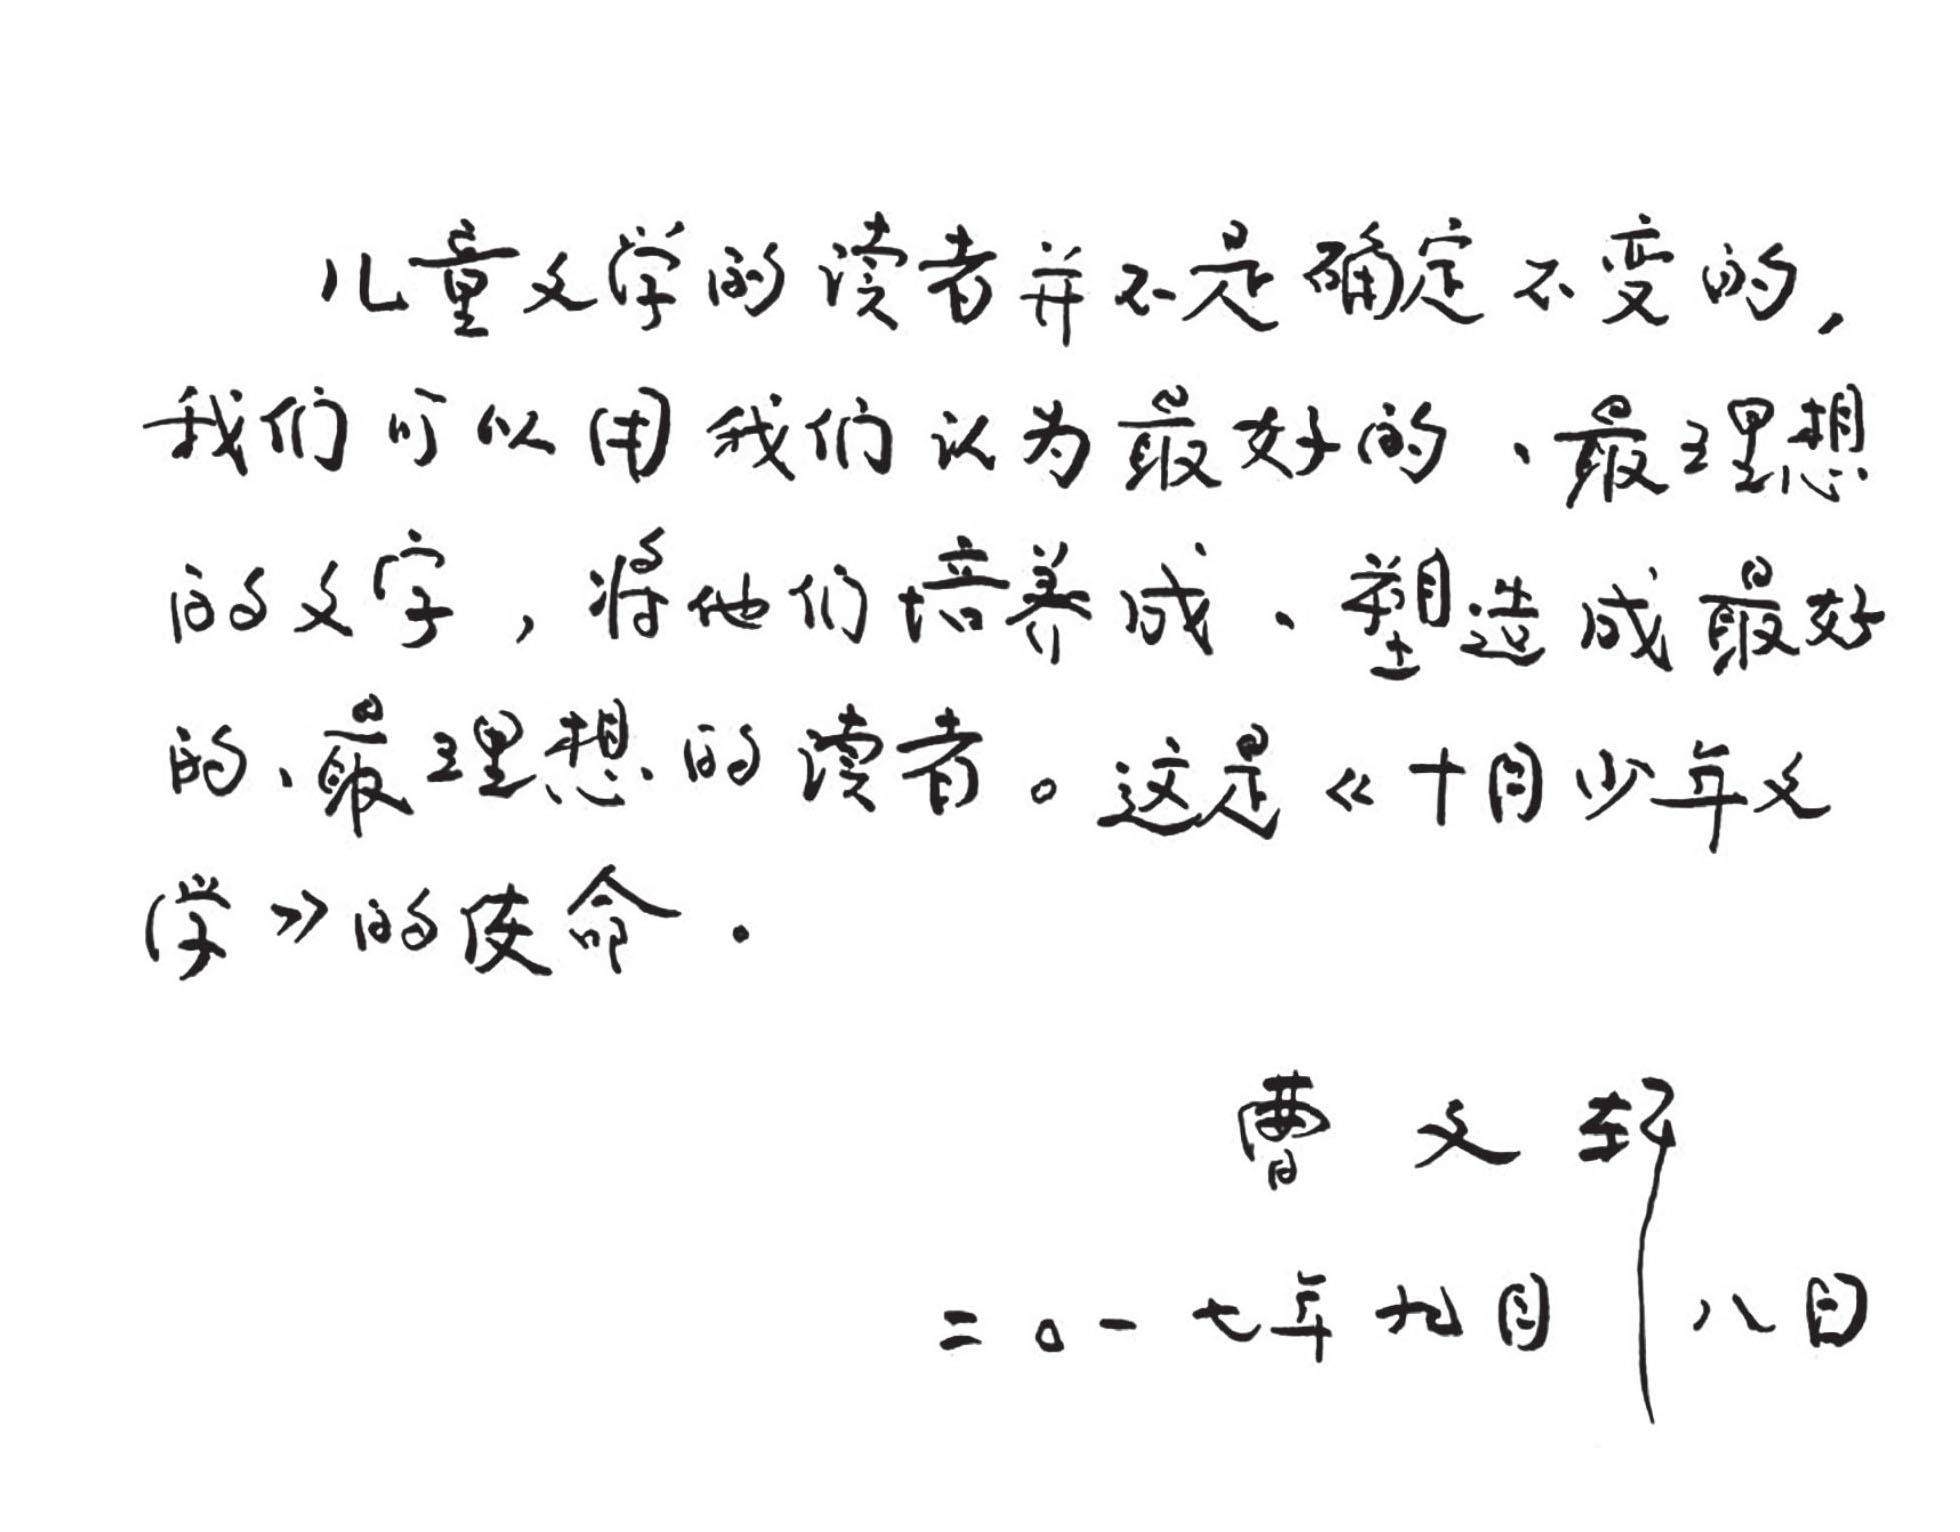 儿童文学的读者并不是确定不变的，
我们可以用我们认为最好的、最理想
的文字，将他们培养成、塑造成最好
的、最理想的读者。这是《十月少年文
学》的使命.
曹文轩
二〇一七年九月八日